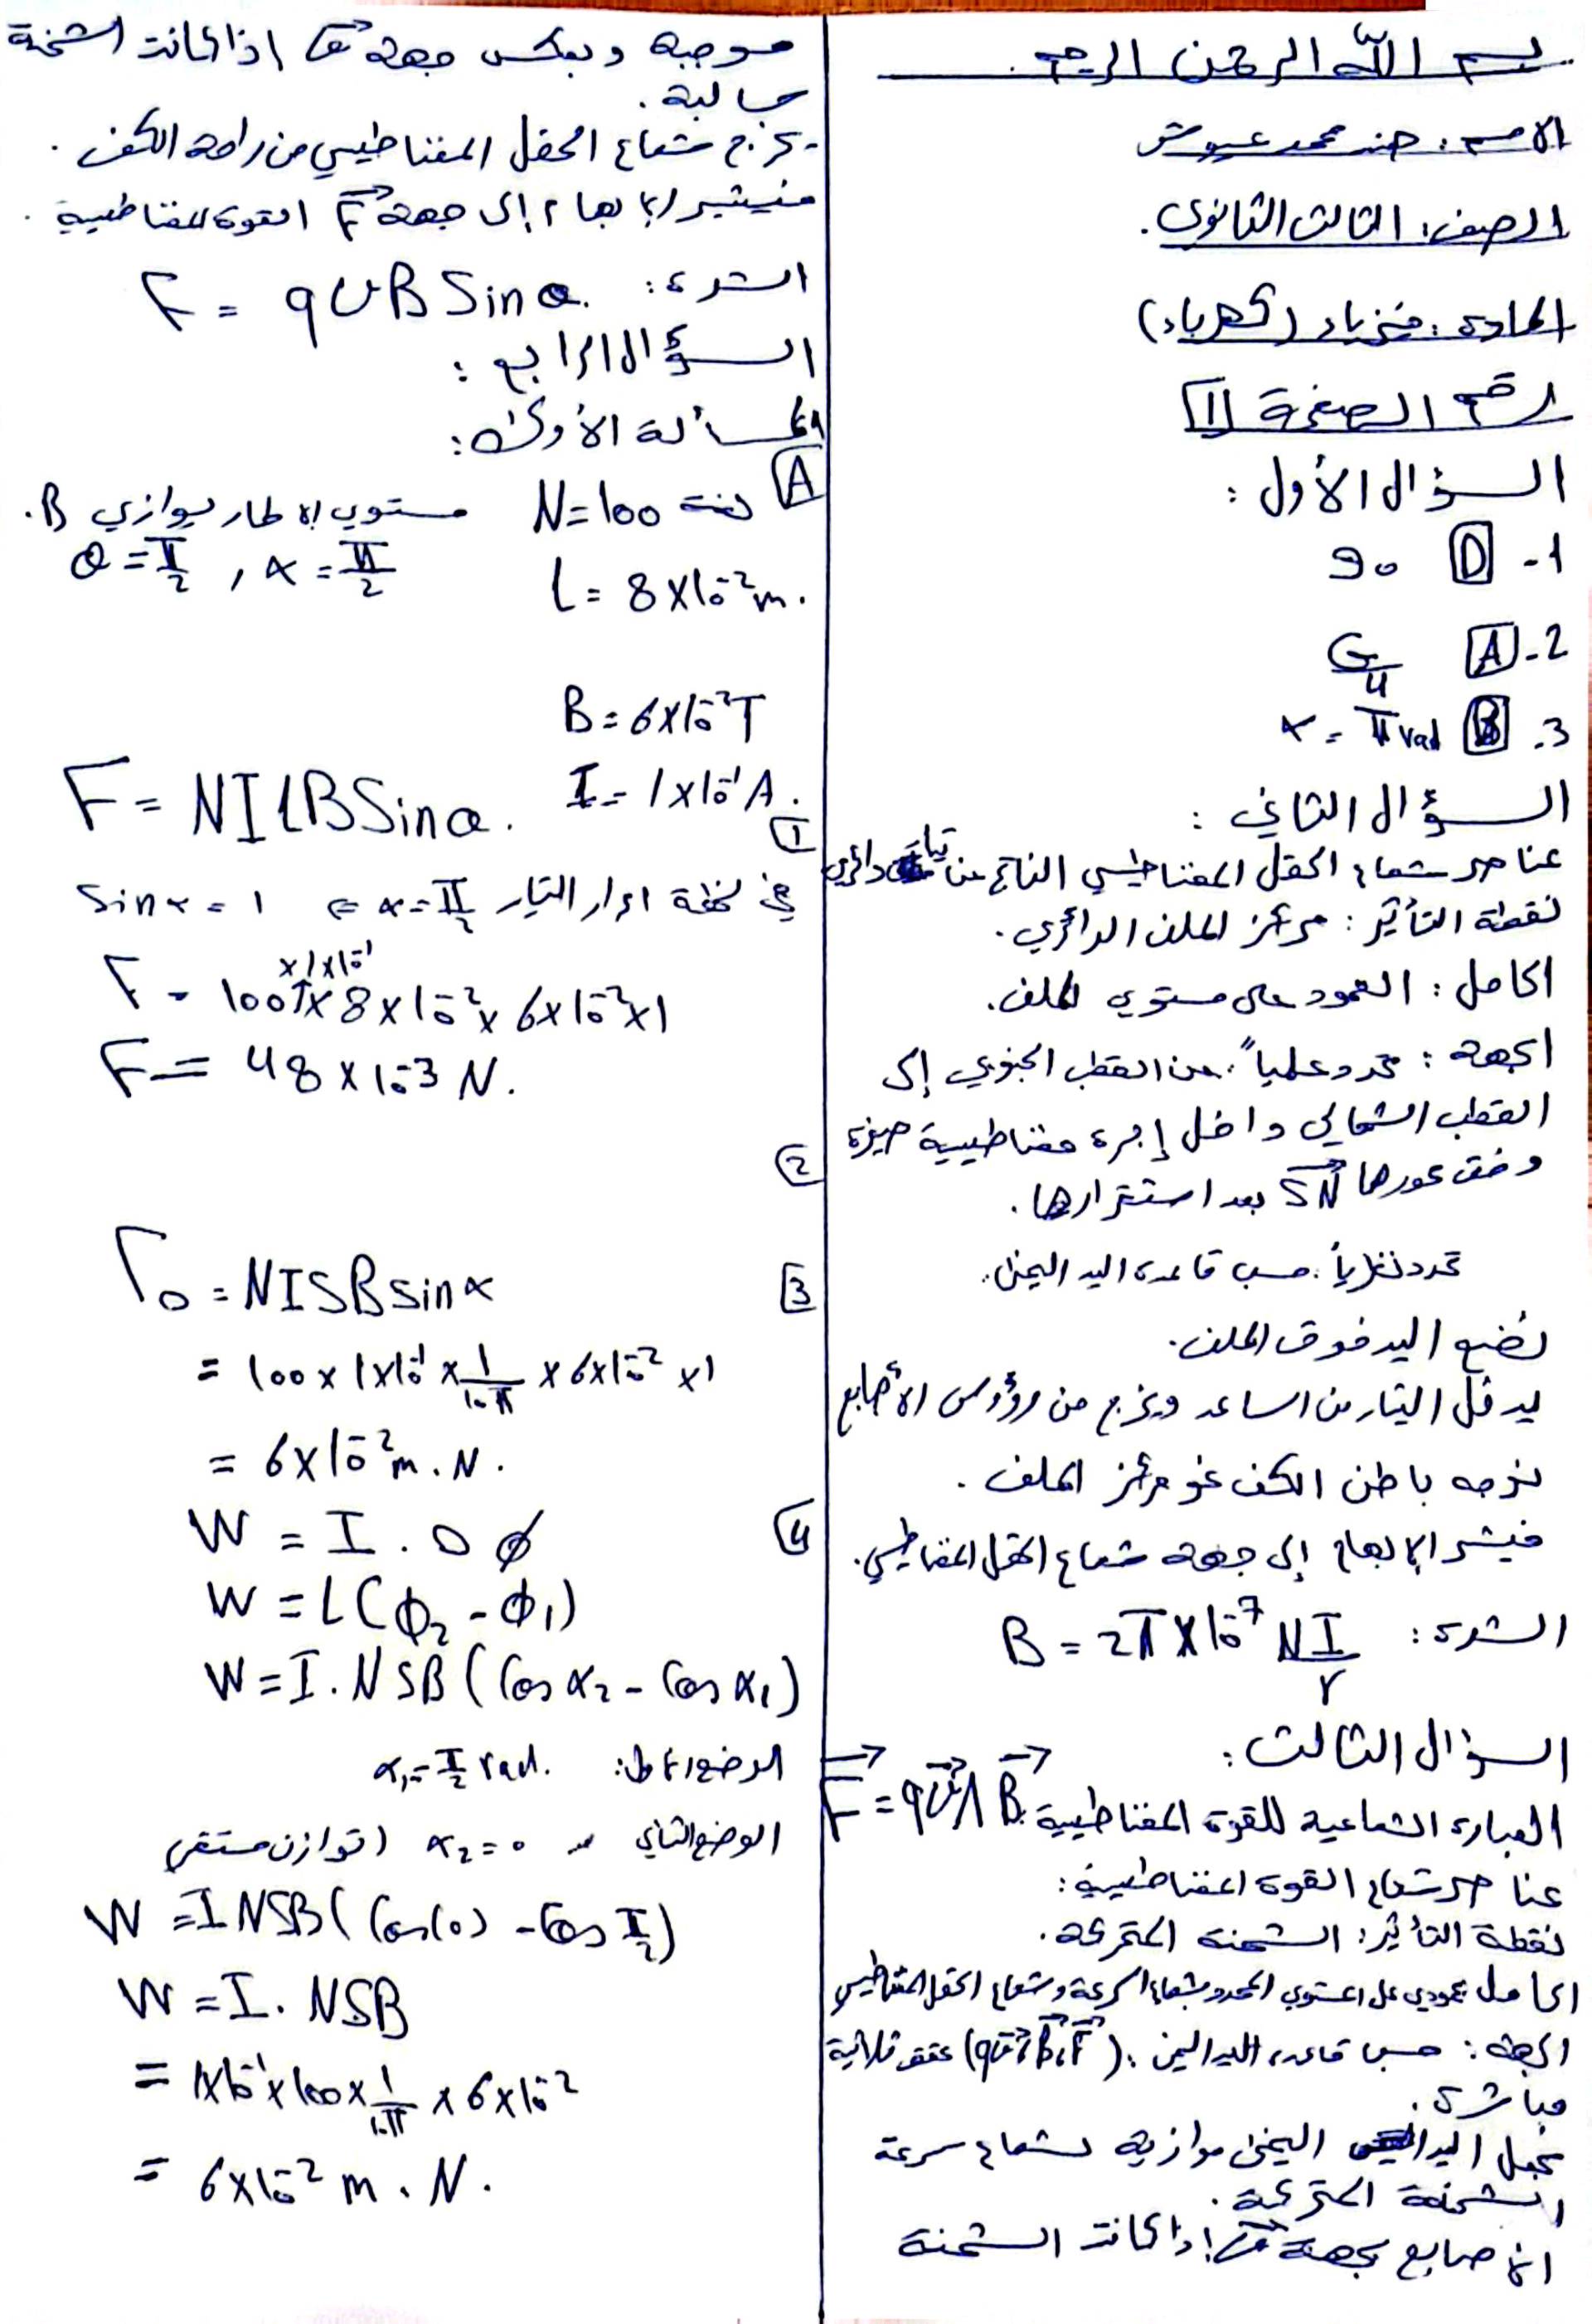 بسم الله الرحمن الرحيم.
الاسم: هند محمد عبوش
الصف: الثالث الثانوي.
المادة: فيزياء (كهرباء)
رقم الصفحة 1
السؤال الأول:
1- D 90
2- A G/4
3- B α = π rad
السؤال الثاني:
عناصر شعاع الحقل المغناطيسي الناتج عن تيار دائري
نقطة التأثير: مركز الملف الدائري.
الحامل: العمود على مستوي الملف.
الجهة: تحدد عملياً: من القطب الجنوبي إلى
القطب الشمالي داخل إبرة مغناطيسية صغيرة
وفق محورها SN بعد استقرارها.
تحدد نظرياً: حسب قاعدة اليد اليمنى.
نضع اليد فوق الملف.
يدخل التيار من الساعد ويخرج من رؤوس الأصابع
نوجه باطن الكف نحو مركز الملف.
فيشير الإبهام إلى جهة شعاع الحقل المغناطيسي.
الشدة: B = 2π×10⁻⁷ NI/r
السؤال الثالث:
العبارة الشعاعية للقوة المغناطيسية: F = qv Λ B
عناصر شعاع القوة المغناطيسية:
نقطة التأثير: الشحنة المتحركة.
الحامل عمودي على المستوي المحدد بشعاع السرعة وشعاع الحقل المغناطيسي
الجهة: حسب قاعدة اليد اليمنى: (qv, B, F) تحقق ثلاثية
مباشرة.
نجعل اليد اليمنى موازية لشعاع سرعة
الشحنة المتحركة.
الأصابع بجهة v إذا كانت الشحنة
موجبة وبعكس جهة v إذا كانت الشحنة
سالبة.
- يخرج شعاع الحقل المغناطيسي من راحة الكف.
فيشير الإبهام إلى جهة F القوة المغناطيسية.
الشدة: F = qvB Sin θ.
السؤال الرابع:
المسألة الأولى:
A N=100 لفة مستوي الإطار يوازي B.
θ = π/2 , α = π/2
L = 8×10⁻² m.
B = 6×10⁻² T
I = 1×10⁻¹ A.
1 F = NILB Sin θ.
في لحظة إمرار التيار α = π/2 ⇐ sin α = 1
F = 100 ×1×10⁻¹ × 8×10⁻² × 6×10⁻² ×1
F = 48×10⁻³ N.
2
3 Γ₀ = NISB sin α
= 100 × 1×10⁻¹ × 1/10π × 6×10⁻² ×1
= 6×10⁻² m.N.
4 W = I . Δ ϕ
W = I (ϕ₂ - ϕ₁)
W = I . NSB (Cos α₂ - Cos α₁)
الوضع الأول: α₁ = π/2 rad.
الوضع الثاني α₂ = 0 (توازن مستقر
W = INSB (Cos(0) - Cos π/2)
W = I . NSB
= 1×10⁻¹ × 100 × 1/10π × 6×10⁻²
= 6×10⁻² m.N.